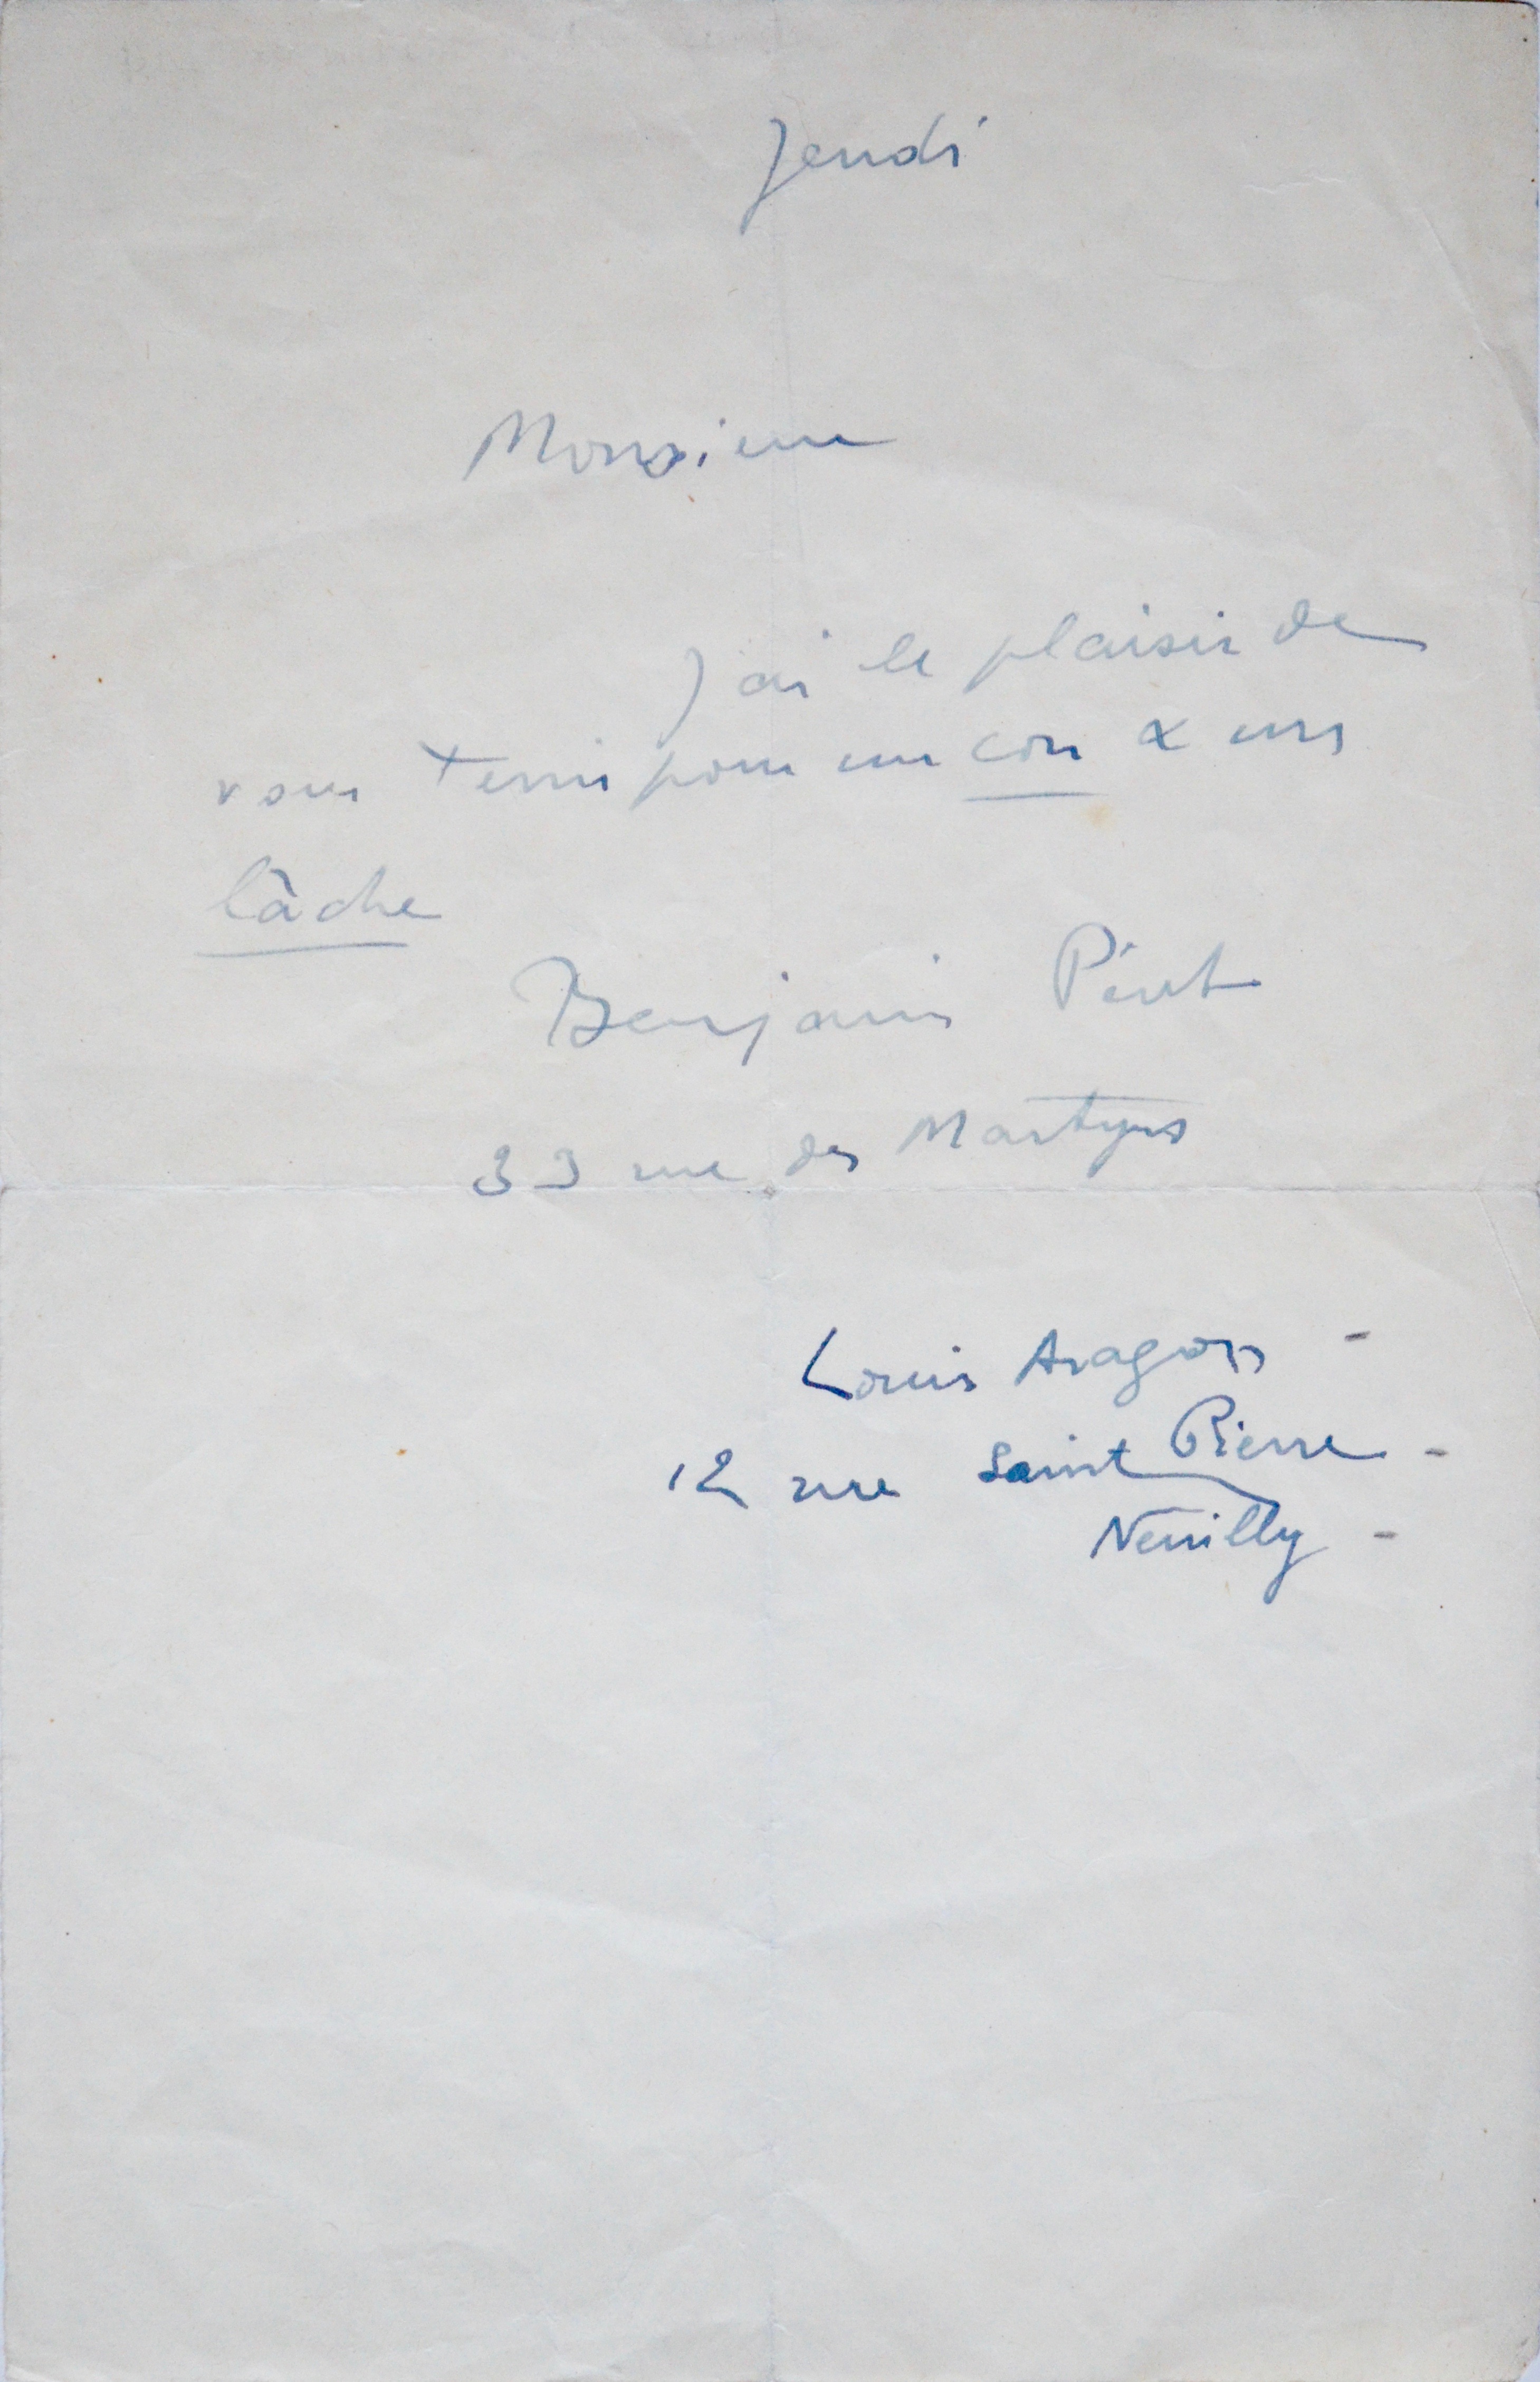 Jeudi
Monsieur
J'ai le plaisir de
vous tenir pour un con & un
lâche
Benjamin Péret
33 rue des Martyrs
Louis Aragon -
12 rue Saint Pierre -
Neuilly -